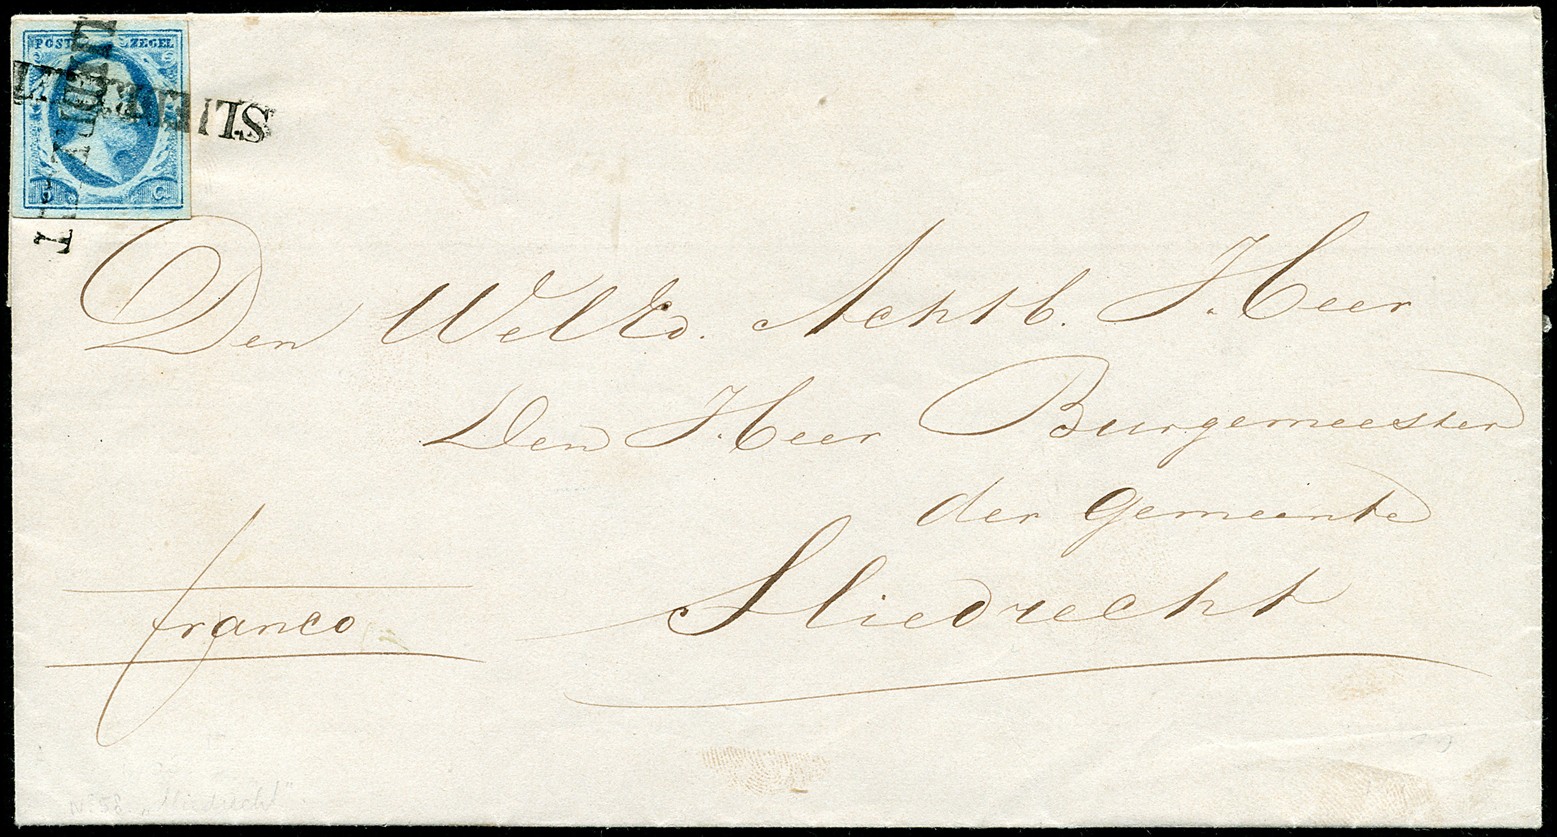 POST ZEGEL
SLIEDRECHT
5 C
Den WelEd. Achtb. Heer
Den Heer Burgemeester
der Gemeinte
Sliedrecht
franco
No 58 „Sliedrecht"